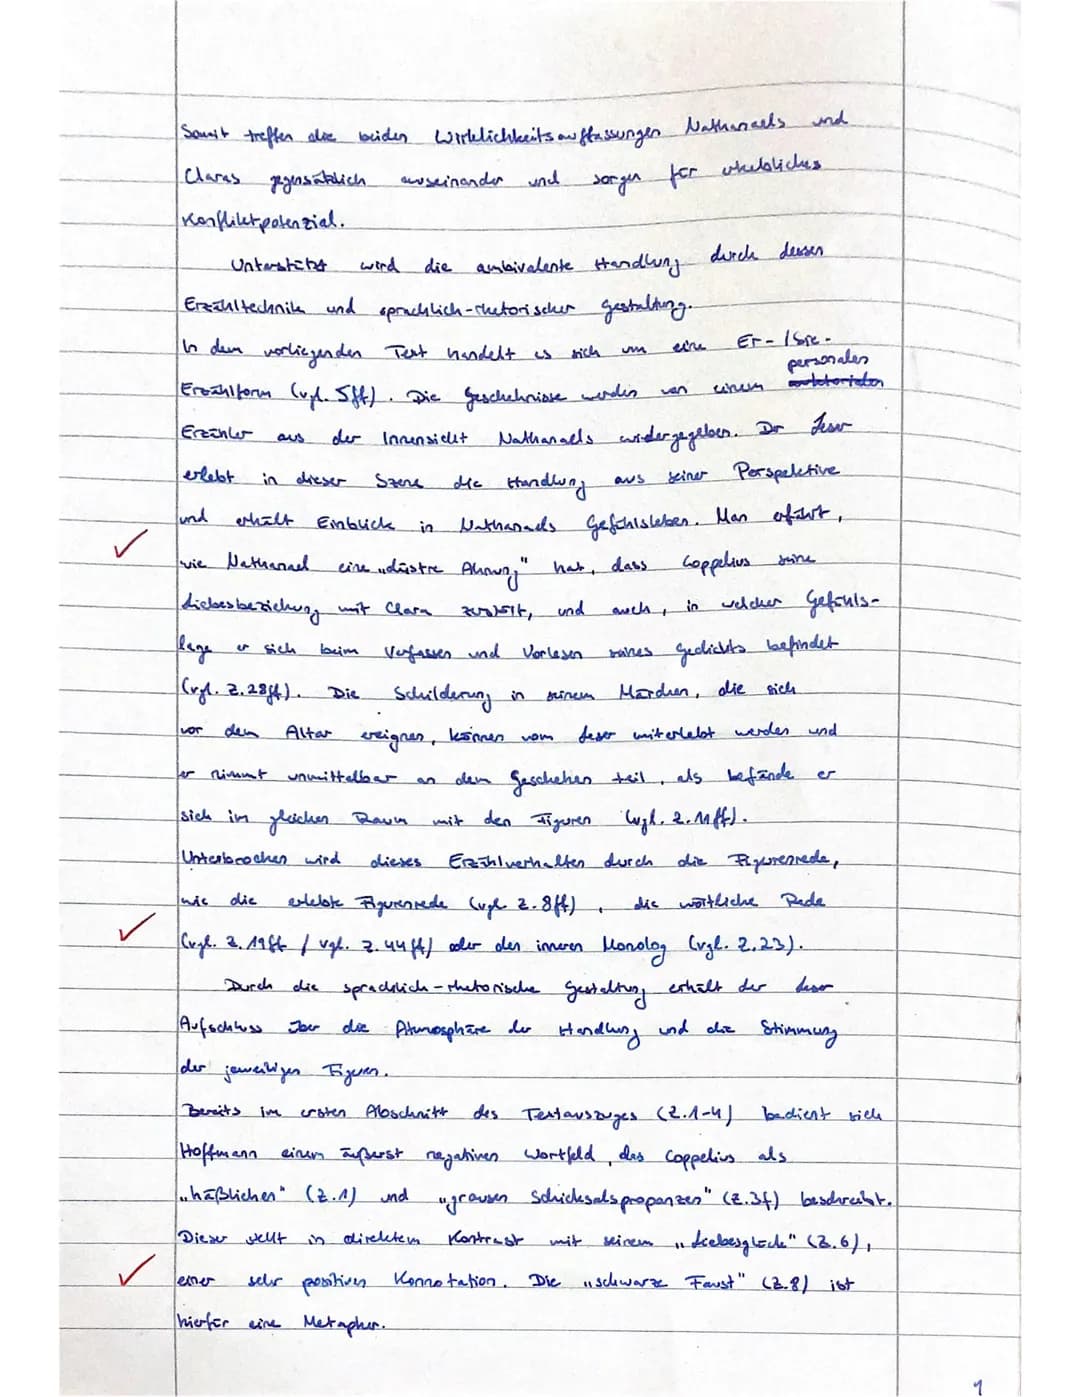 Somit treffen die beiden Wirklichkeitsauffassungen Nathanaels und
Claras gegensätzlich auseinander und sorgen für erhebliches
Konfliktpotenzial.
Unterstützt wird die ambivalente Handlung durch dessen
Erzähltechnik und sprachlich-rhetorischer Gestaltung.
In dem vorliegenden Text handelt es sich um eine Er-/Sie-
personalen
Erzählform (vgl. 5ff). Die Geschehnisse werden von einem auktorialen
Erzähler aus der Innensicht Nathanaels widergegeben. Der Leser
erlebt in dieser Szene die Handlung aus seiner Perspektive
und erhält Einblicke in Nathanaels Gefühlsleben. Man erfährt,
wie Nathanael eine „düstre Ahnung" hat, dass Coppelius seine
Liebesbeziehung mit Clara zerstört, und auch, in welcher Gefühls-
lage er sich beim Verfassen und Vorlesen seines Gedichts befindet
(vgl. Z.28ff). Die Schilderung in seinem Märchen, die sich
vor dem Altar ereignen, können vom Leser miterlebt werden und
er nimmt unmittelbar an dem Geschehen teil, als befände er
sich im gleichen Raum mit den Figuren (vgl. Z.11ff).
Unterbrochen wird dieses Erzählverhalten durch die Figurenrede,
wie die erlebte Figurenrede (vgl Z.8ff), die wörtliche Rede
(vgl. Z.19ff / vgl. Z.44ff) oder den inneren Monolog (vgl. Z.23).
Durch die sprachlich-rhetorische Gestaltung erhält der Leser
Aufschluss über die Atmosphäre der Handlung und die Stimmung
der jeweiligen Figuren.
Bereits im ersten Abschnitt des Textauszuges (Z.1-4) bedient sich
Hoffmann einem äußerst negativen Wortfeld, das Coppelius als
„häßlichen" (Z.1) und „grausen Schicksalspropanzen" (Z.3f) beschreibt.
Dieser stellt in direktem Kontrast mit seinem „Liebesglück" (Z.6),
einer sehr positiven Konnotation. Die „schwarze Faust" (Z.8) ist
hierfür eine Metapher.
1